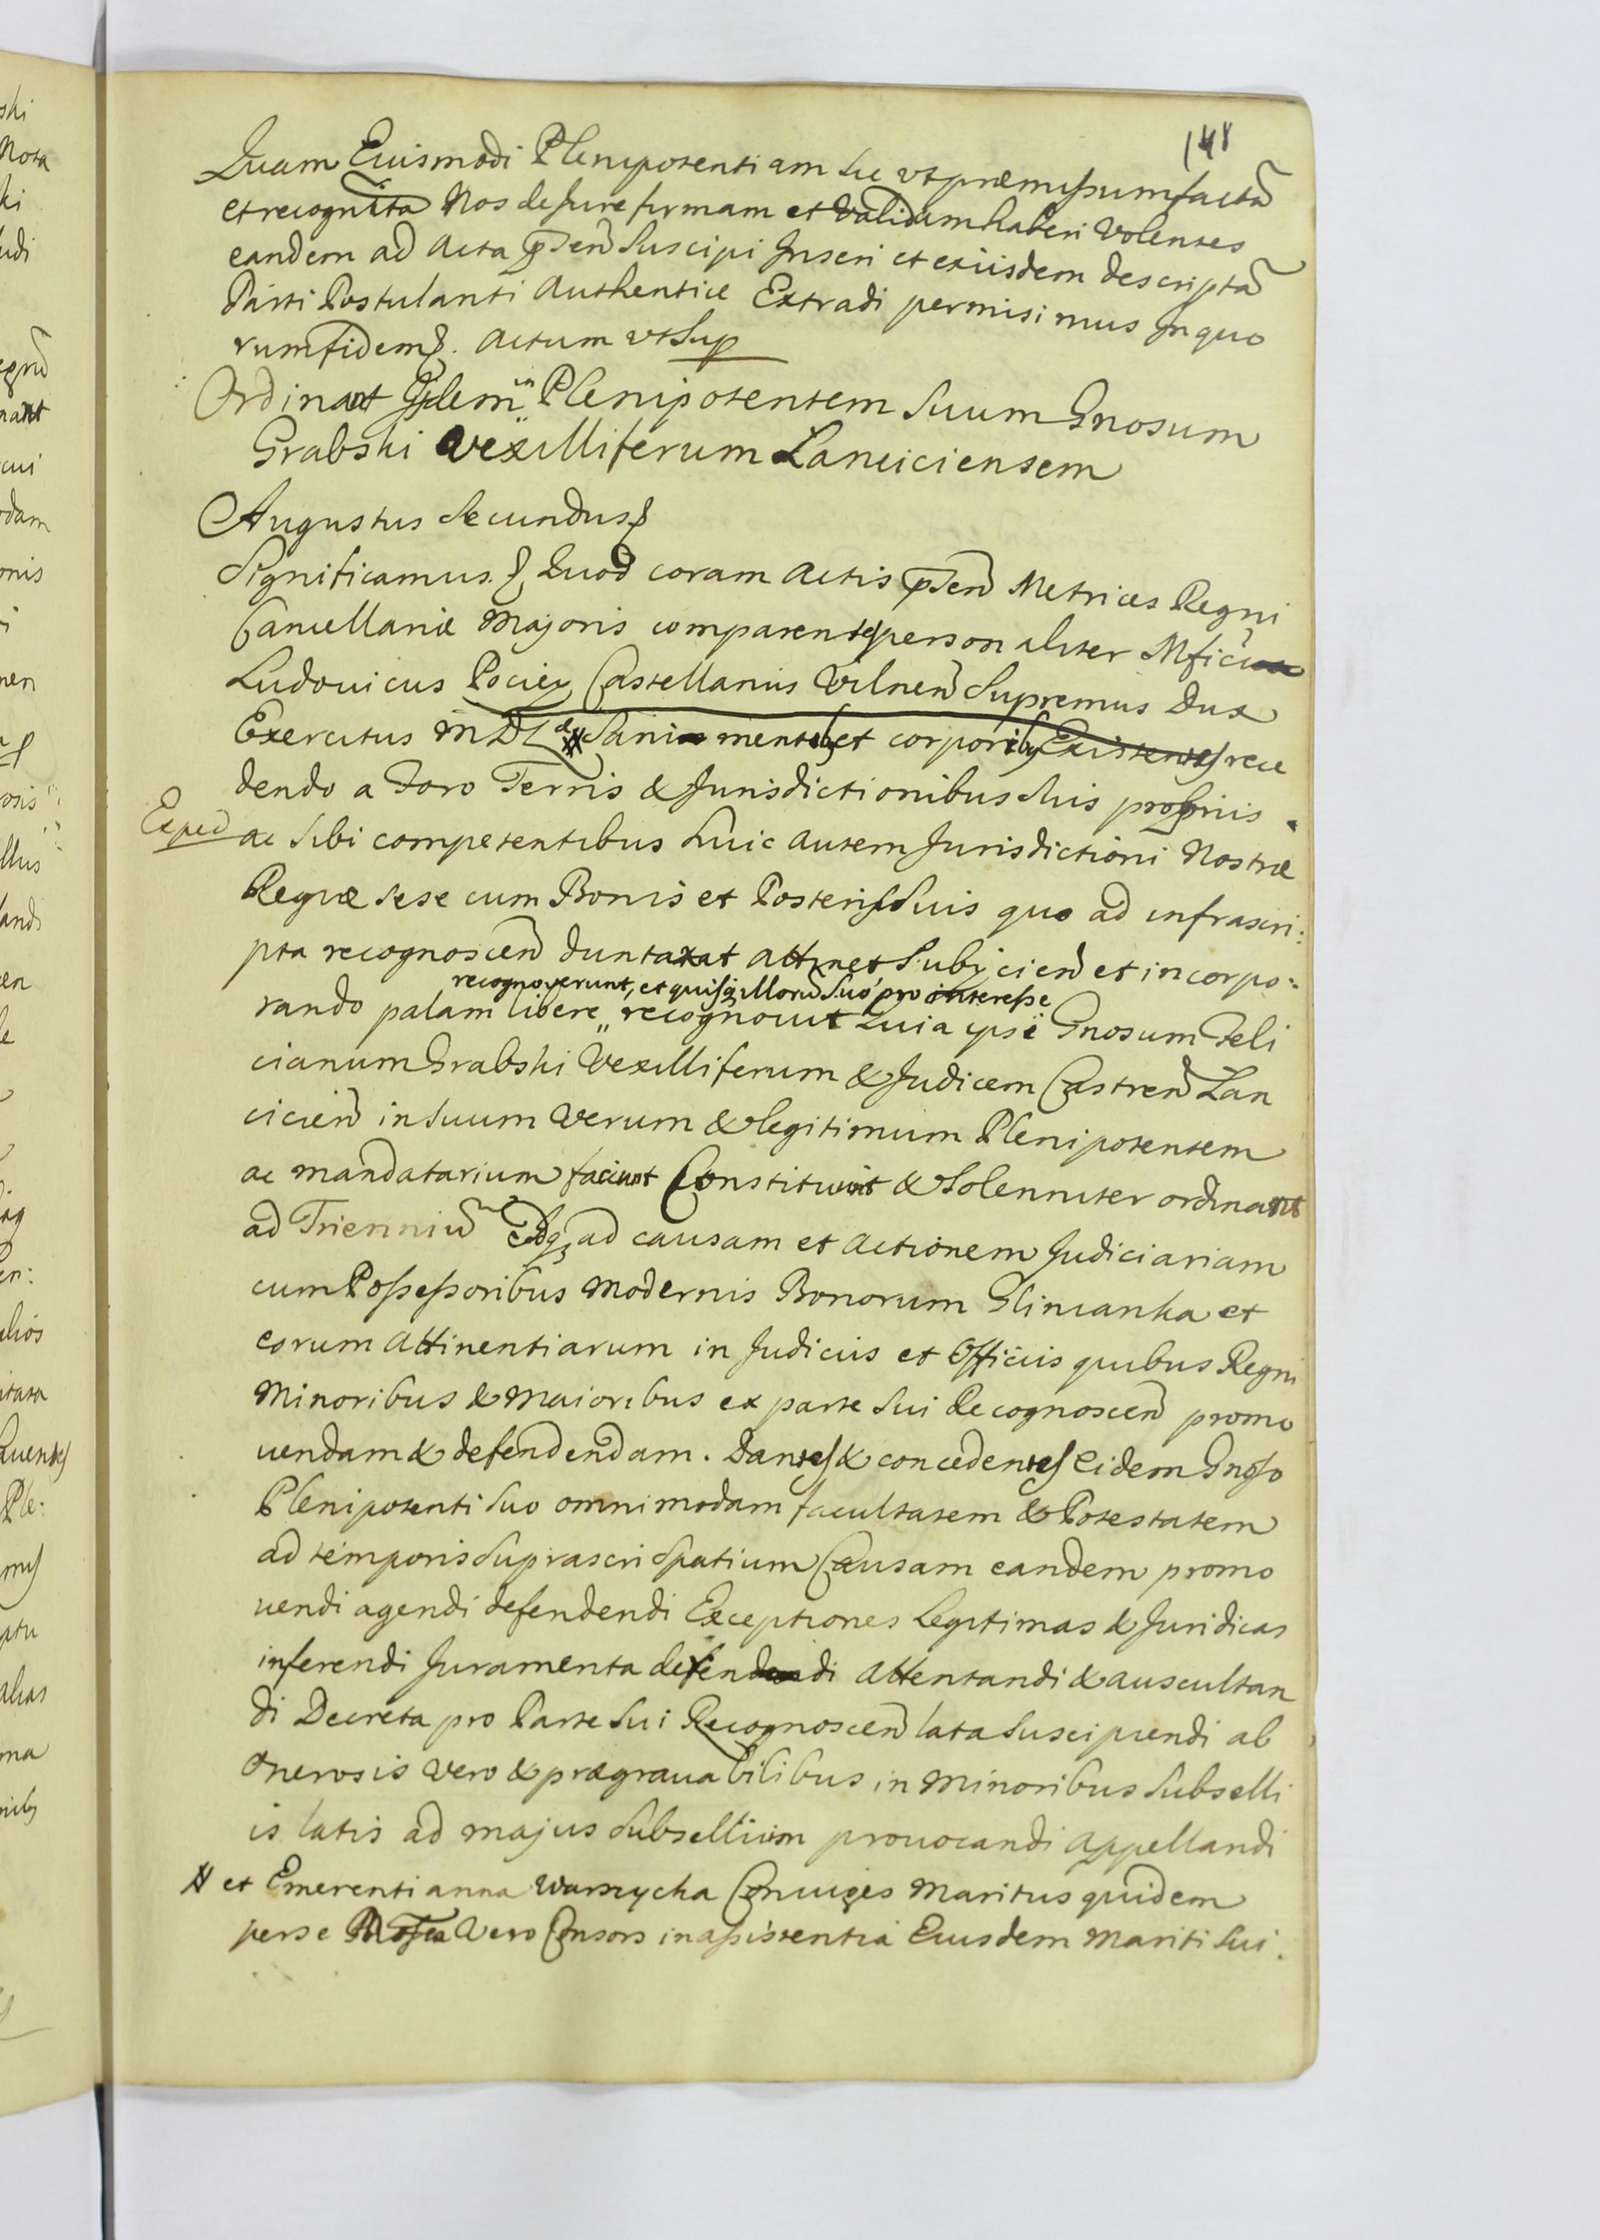 148
Quam Euismodi Plenipotentiam sic vt præmissum factã
et recognita Nos de Jure firmam et Validam haberi Volentes
eandem ad Acta pñsen̄ Suscipi Inseri et eiusdem descriptã
Parti Postulanti Authentice Extradi permisimus In quo
rum fidem. Actum vt Sup
Ordinant Iidem in Plenipotentem Suum Gnosum
Grabski Vexilliferum Lanciciensem
Augustus Secundus
Significamus. Quod coram Actis pñsen̄ Metrices Regni
Cancellariæ Majoris comparentes personaliter Mficus
Ludouicus Pociey Castellanus Vilnen̄ Supremus Dux
Exercitus MDL # Sani mentibus et corporibus Existentes rece
dendo a Foro Terris & Jurisdictionibus suis propriis
Exped
ac sibi competentibus huic autem Jurisdictioni Nostræ
Regiæ sese cum Bonis et Posteris Suis quo ad infrascri:
pta recognoscen̄ duntaxat attinet Subijcien̄ et incorpo:
recognoverunt, et quisq illorũ Suo pro interesse
rando palam libere „ recognouit Quia ipsi Gnosum Feli
cianum Grabski Vexilliferum & Judicem Castren̄ Lan
cicien̄ in suum verum & legitimum Plenipotentem
ac mandatarium faciunt Constituunt & Solenniter ordinant
ad Trienniũ Idq ad causam et Actionem Judiciariam
cum Possessoribus Modernis Bonorum Glinianka et
eorum Attinentiarum in Judiciis et Officiis quibus Regni
Minoribus & Maioribus ex parte sui Recognoscen̄ promo
uendam & defendendam. Dantes & concedentes Eidem Gnoso
Plenipotenti suo omnimodam facultatem & Potestatem
ad temporis suprascri Spatium Causam eandem promo
uendi agendi defendendi Exceptiones Legitimas & Juridicas
inferendi Juramenta deferendi Attentandi & auscultan
di Decreta pro Parte sui Recognoscen̄ lata Suscipiendi ab
Onerosis vero & prægrauabilibus in Minoribus Subselli
is latis ad majus Subsellium prouocandi Appellandi
# et Emerentianna Warszycka Coniuges Maritus quidem
per se Vero Consors in assistentia Eiusdem Mariti Sui.